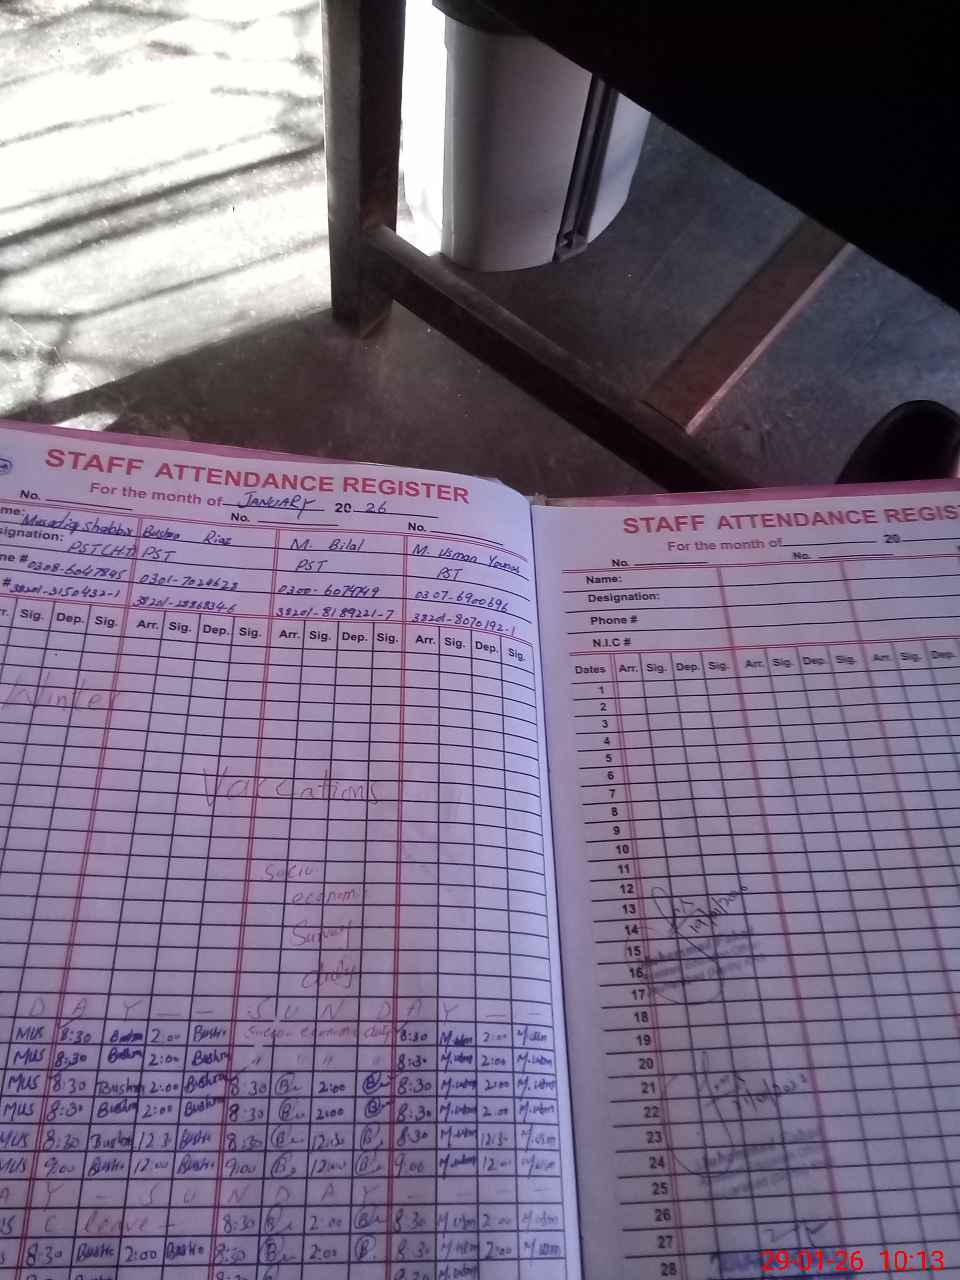 STAFF ATTENDANCE REGISTER
For the month of JANUARY 20 26
No. No. No.
Bushra Riaz M. Bilal M. Usman Younas
signation: PST PST PST
ne # 0308-6047845 0301-7024623 0300-6079749 0307-6900696
# 38201-3150432-1 38201-8189221-7 38201-8070192-1
Sig. Dep. Sig. Arr. Sig. Dep. Sig. Arr. Sig. Dep. Sig. Arr. Sig. Dep. Sig.
Winter
Vaccations
Socio
economi
Survey
duty
D A Y — — S U N D A Y — —
MUS 8:30 Bushra 2:00 Bushra Socio-economic duty 8:30 M.usm 2:00 M.usm
MUS 8:30 Bushra 2:00 Bushra " " " 8:30 M.usm 2:00 M.usm
MUS 8:30 Bushra 2:00 Bushra 8:30 2:00 8:30 M.usm 2:00 M.usm
MUS 8:30 Bushra 2:00 Bushra 8:30 2:00 8:30 M.usm 2:00 M.usm
MUS 8:30 Bushra 12:30 Bushra 8:30 12:30 8:30 M.usm 12:30 M.usm
MUS 9:00 Bushra 12:00 Bushra 9:00 12:00 9:00 M.usm 12:00 M.usm
A Y — S U N D A Y — — —
C leave — 8:30 2:00 8:30 M.usm 2:00 M.usm
8:30 Bushra 2:00 Bushra 8:30 2:00 8:30 M.usm 2:00 M.usm
STAFF ATTENDANCE REGIST
For the month of 20
No. No.
Name:
Designation:
Phone #
N.I.C #
Dates Arr. Sig. Dep. Sig. Arr. Sig. Dep. Sig. Arr. Sig. Dep.
1
2
3
4
5
6
7
8
9
10
11
12
13
14
15
16
17
18
19
20
21
22
23
24
25
26
27
28
29-01-26 10:13